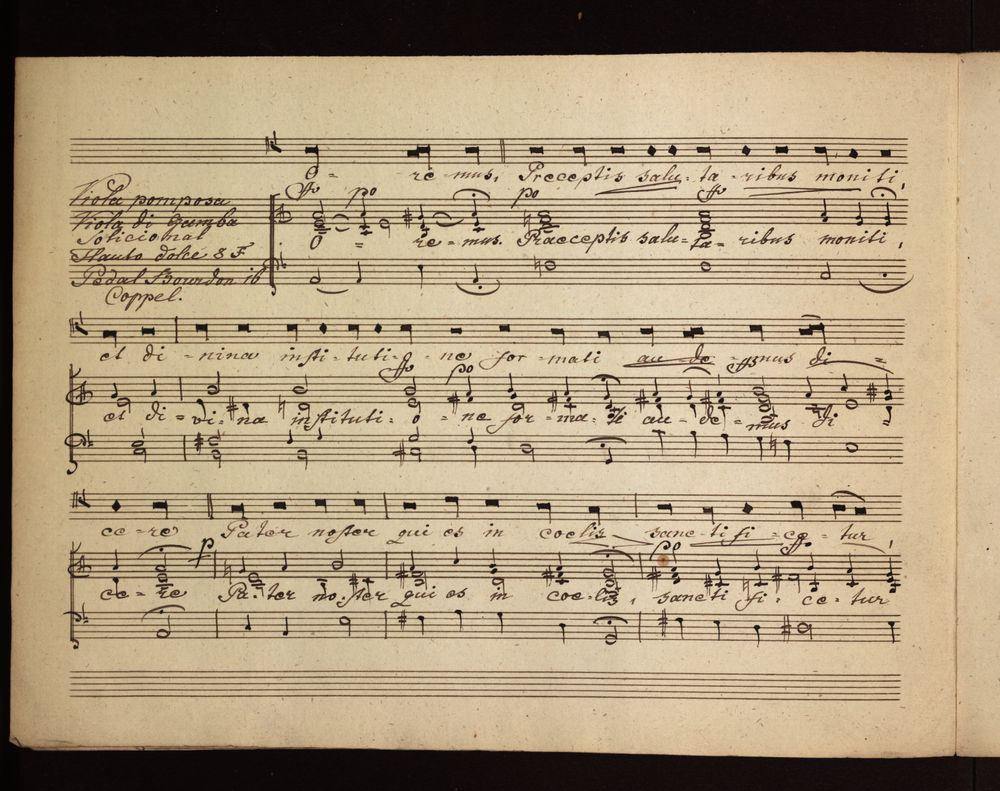 O - re - mus, Preceptis salu - ta - ribus moniti,
ffo po po ffo
Viola pomposa
Viola di Gamba
Solicional
Flauto dolce 8 F
Pedal Bourdon 16
Coppel.
O = re = mus. Praeceptis salu = ta = ribus moniti,
et di - nina insti - tuti - o - ne for - mati au - de - mus di =
ffo po ffo
et di = vi = na instituti = o = ne for = ma = ti au = de = mus di =
ce - re Pater noster qui es in coelis sanc - ti fi - ce - tur,
p po ffo
ce = re Pa = ter no = ster qui es in coe = lis, sancti fi = ce = tur